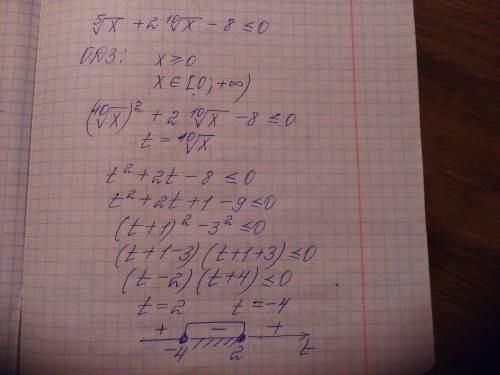 ⁵√x + 2 ¹⁰√x - 8 ≤ 0
ОДЗ: x ≥ 0
x ∈ [0; +∞)
(¹⁰√x)² + 2 ¹⁰√x - 8 ≤ 0
t = ¹⁰√x
t² + 2t - 8 ≤ 0
t² + 2t + 1 - 9 ≤ 0
(t+1)² - 3² ≤ 0
(t+1-3)(t+1+3) ≤ 0
(t-2)(t+4) ≤ 0
t = 2 t = -4
+ - +
-4 2 t